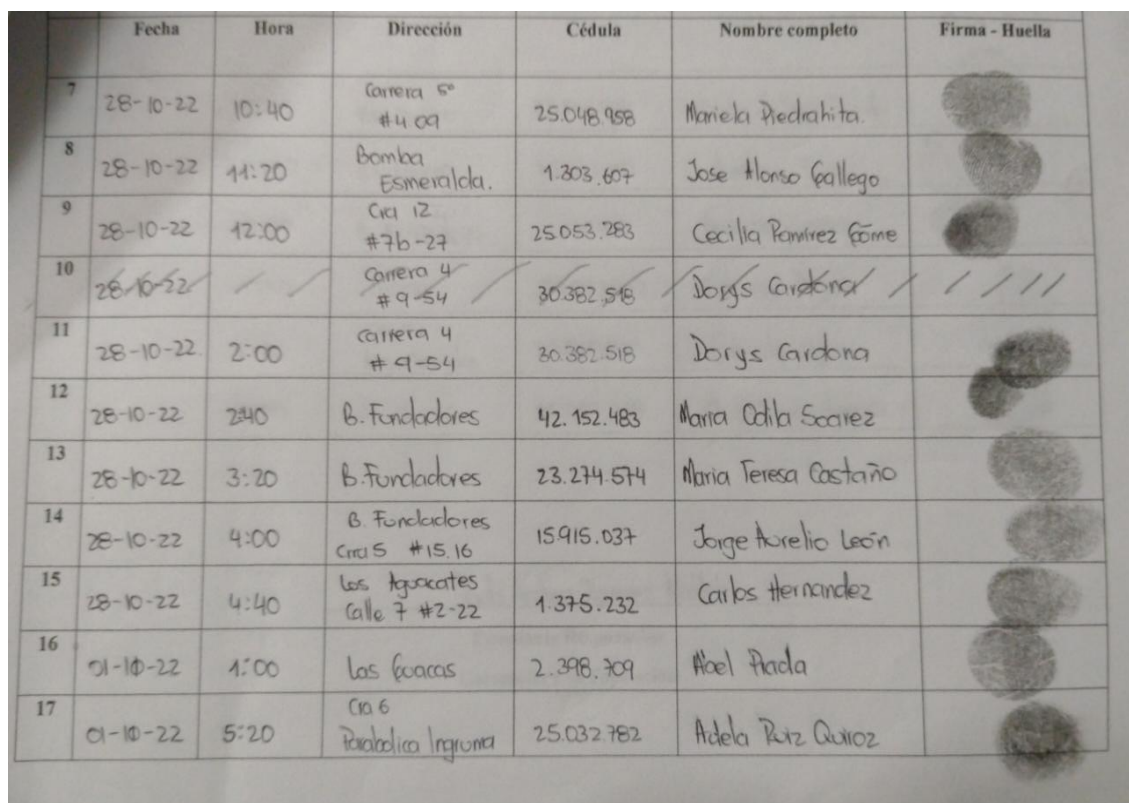 Fecha Hora Dirección Cédula Nombre completo Firma - Huella
7 28-10-22 10:40 Carrera 5ª #4 09 25.048.958 Mariela Piedrahita.
8 28-10-22 11:20 Bomba Esmeralda. 1.303.607 Jose Alonso Gallego
9 28-10-22 12:00 Cra 12 #7b-27 25.053.283 Cecilia Ramírez
10 28-10-22 Carrera 4 #9-54 30.382.518 Dorys Cardona
11 28-10-22 2:00 Carrera 4 #9-54 30.382.518 Dorys Cardona
12 28-10-22 2:40 B. Fundadores 42.152.483 Maria Odila
13 28-10-22 3:20 B. Fundadores 23.274.574 Maria Teresa Castaño
14 28-10-22 4:00 B. Fundadores Crra 5 #15.16 15.915.037 Jorge Aurelio León
15 28-10-22 4:40 Los Aguacates Calle 7 #2-22 1.375.232 Carlos Hernandez
16 01-10-22 1:00 Las Guacas 2.398.709 Abel Prada
17 01-10-22 5:20 Cra 6 Parabolica Ingruma 25.032.782 Adela Ruiz Quiroz